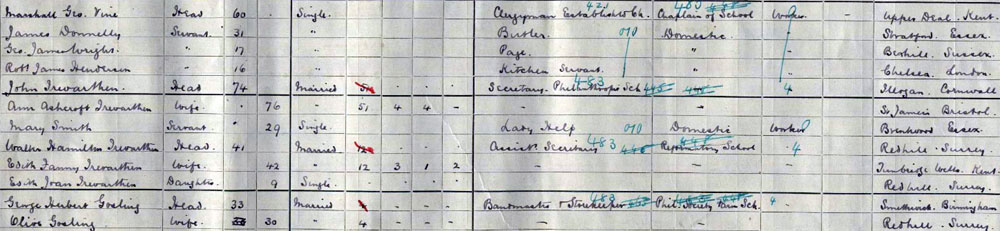 Marshall Geo. Vine Head 60 Single Clergyman Established Ch. Chaplain of School Worker - Upper Deal. Kent.
James Donnelly Servant 31 " Butler 010 Domestic " Stratford Essex
Geo. James Wright " 17 " Page " Bexhill. Sussex
Robt James Henderson " 16 " Kitchen Servant. " Chelsea. London.
John Trevarthen Head 74 Married 51 Secretary. Philanthropic Sch. 483 4 Illogan. Cornwall
Ann Ashcroft Trevarthen Wife 76 " 51 4 4 - - - St James Bristol.
Mary Smith Servant 29 Single Lady Help 010 Domestic Worker Brentwood Essex
Walter Hamilton Trevarthen Head 41 Married 12 Assist. Secretary 483 Reformatory School 4 Redhill. Surrey.
Edith Fanny Trevarthen Wife 42 " 12 3 1 2 - - Tunbridge Wells. Kent.
Edith Joan Trevarthen Daughter 9 Single Redhill. Surrey.
George Herbert Gosling Head 33 Married Bandmaster & Storekeeper 483 Phil. Society Farm Sch. Smethwick. Birmingham
Olive Gosling Wife 30 " 4 - - - - Redhill. Surrey.